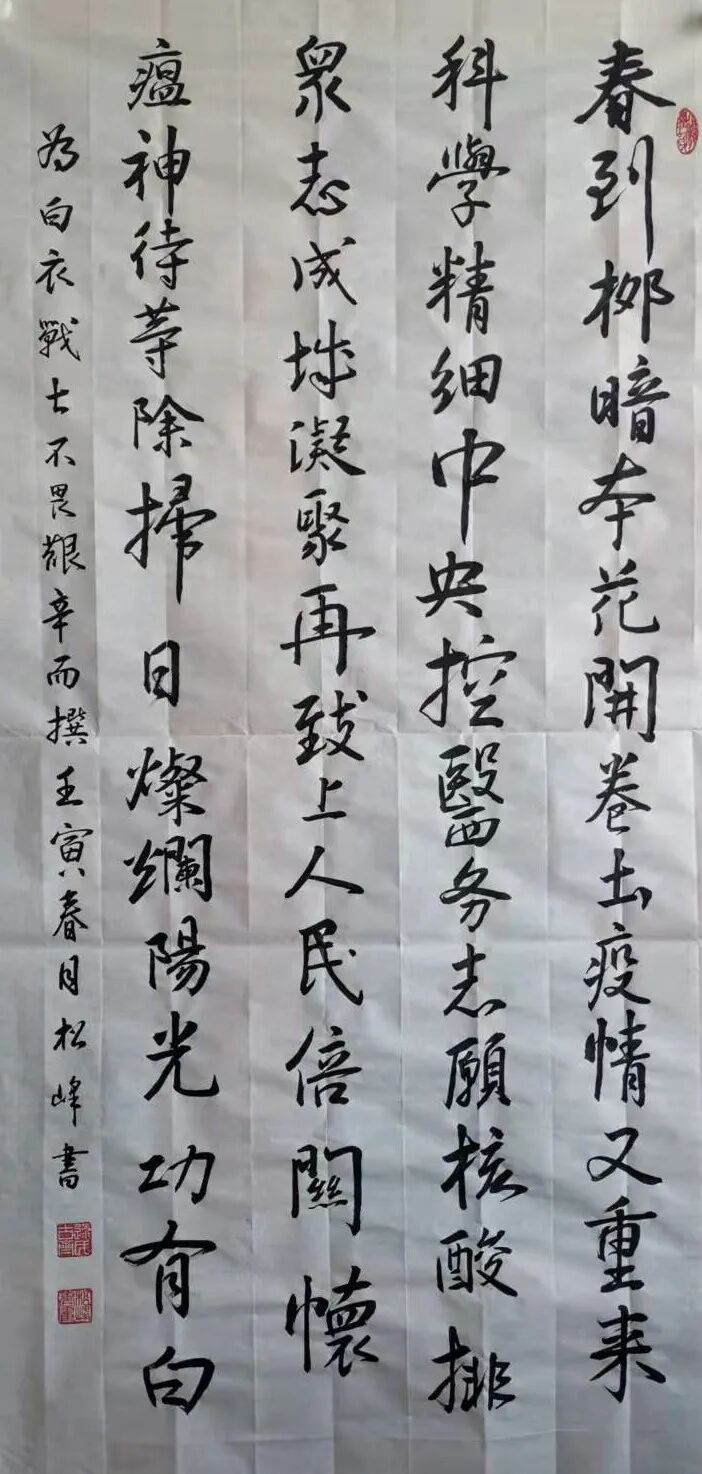 春到柳暗本花開卷土疫情又重来
科學精细中央控醫务志願核酸排
眾志成城凝聚再致上人民倍關懷
瘟神待等除掃日燦爛陽光功有白
为白衣戰士不畏艱辛而撰壬寅春月松峰書